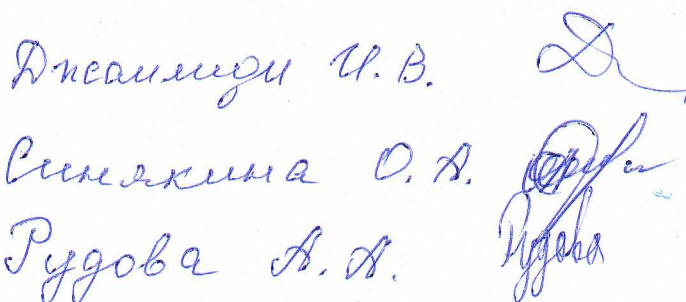 Джаилиди И. В.
Синякина О. А.
Рудова А. А. Рудова